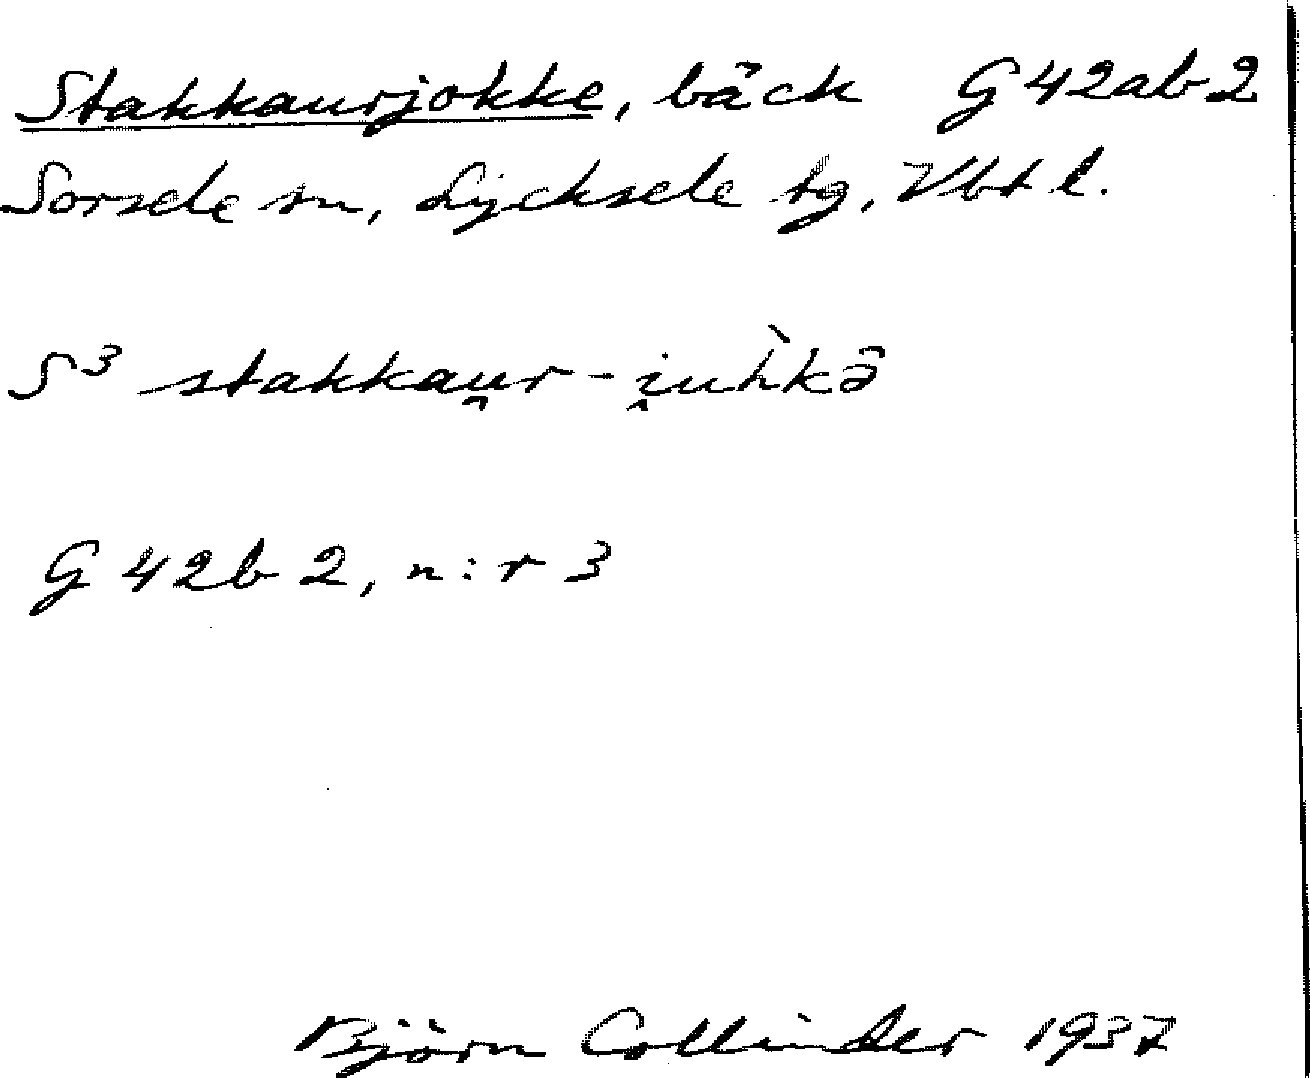 Stakkaurjokke, bäck G42ab2
Sorsele sn, Lycksele tg, Vbt l.
S³ stakkau̯r-i̯uh̀kə̑
G 42b 2, n:r 3
Björn Collinder 1937